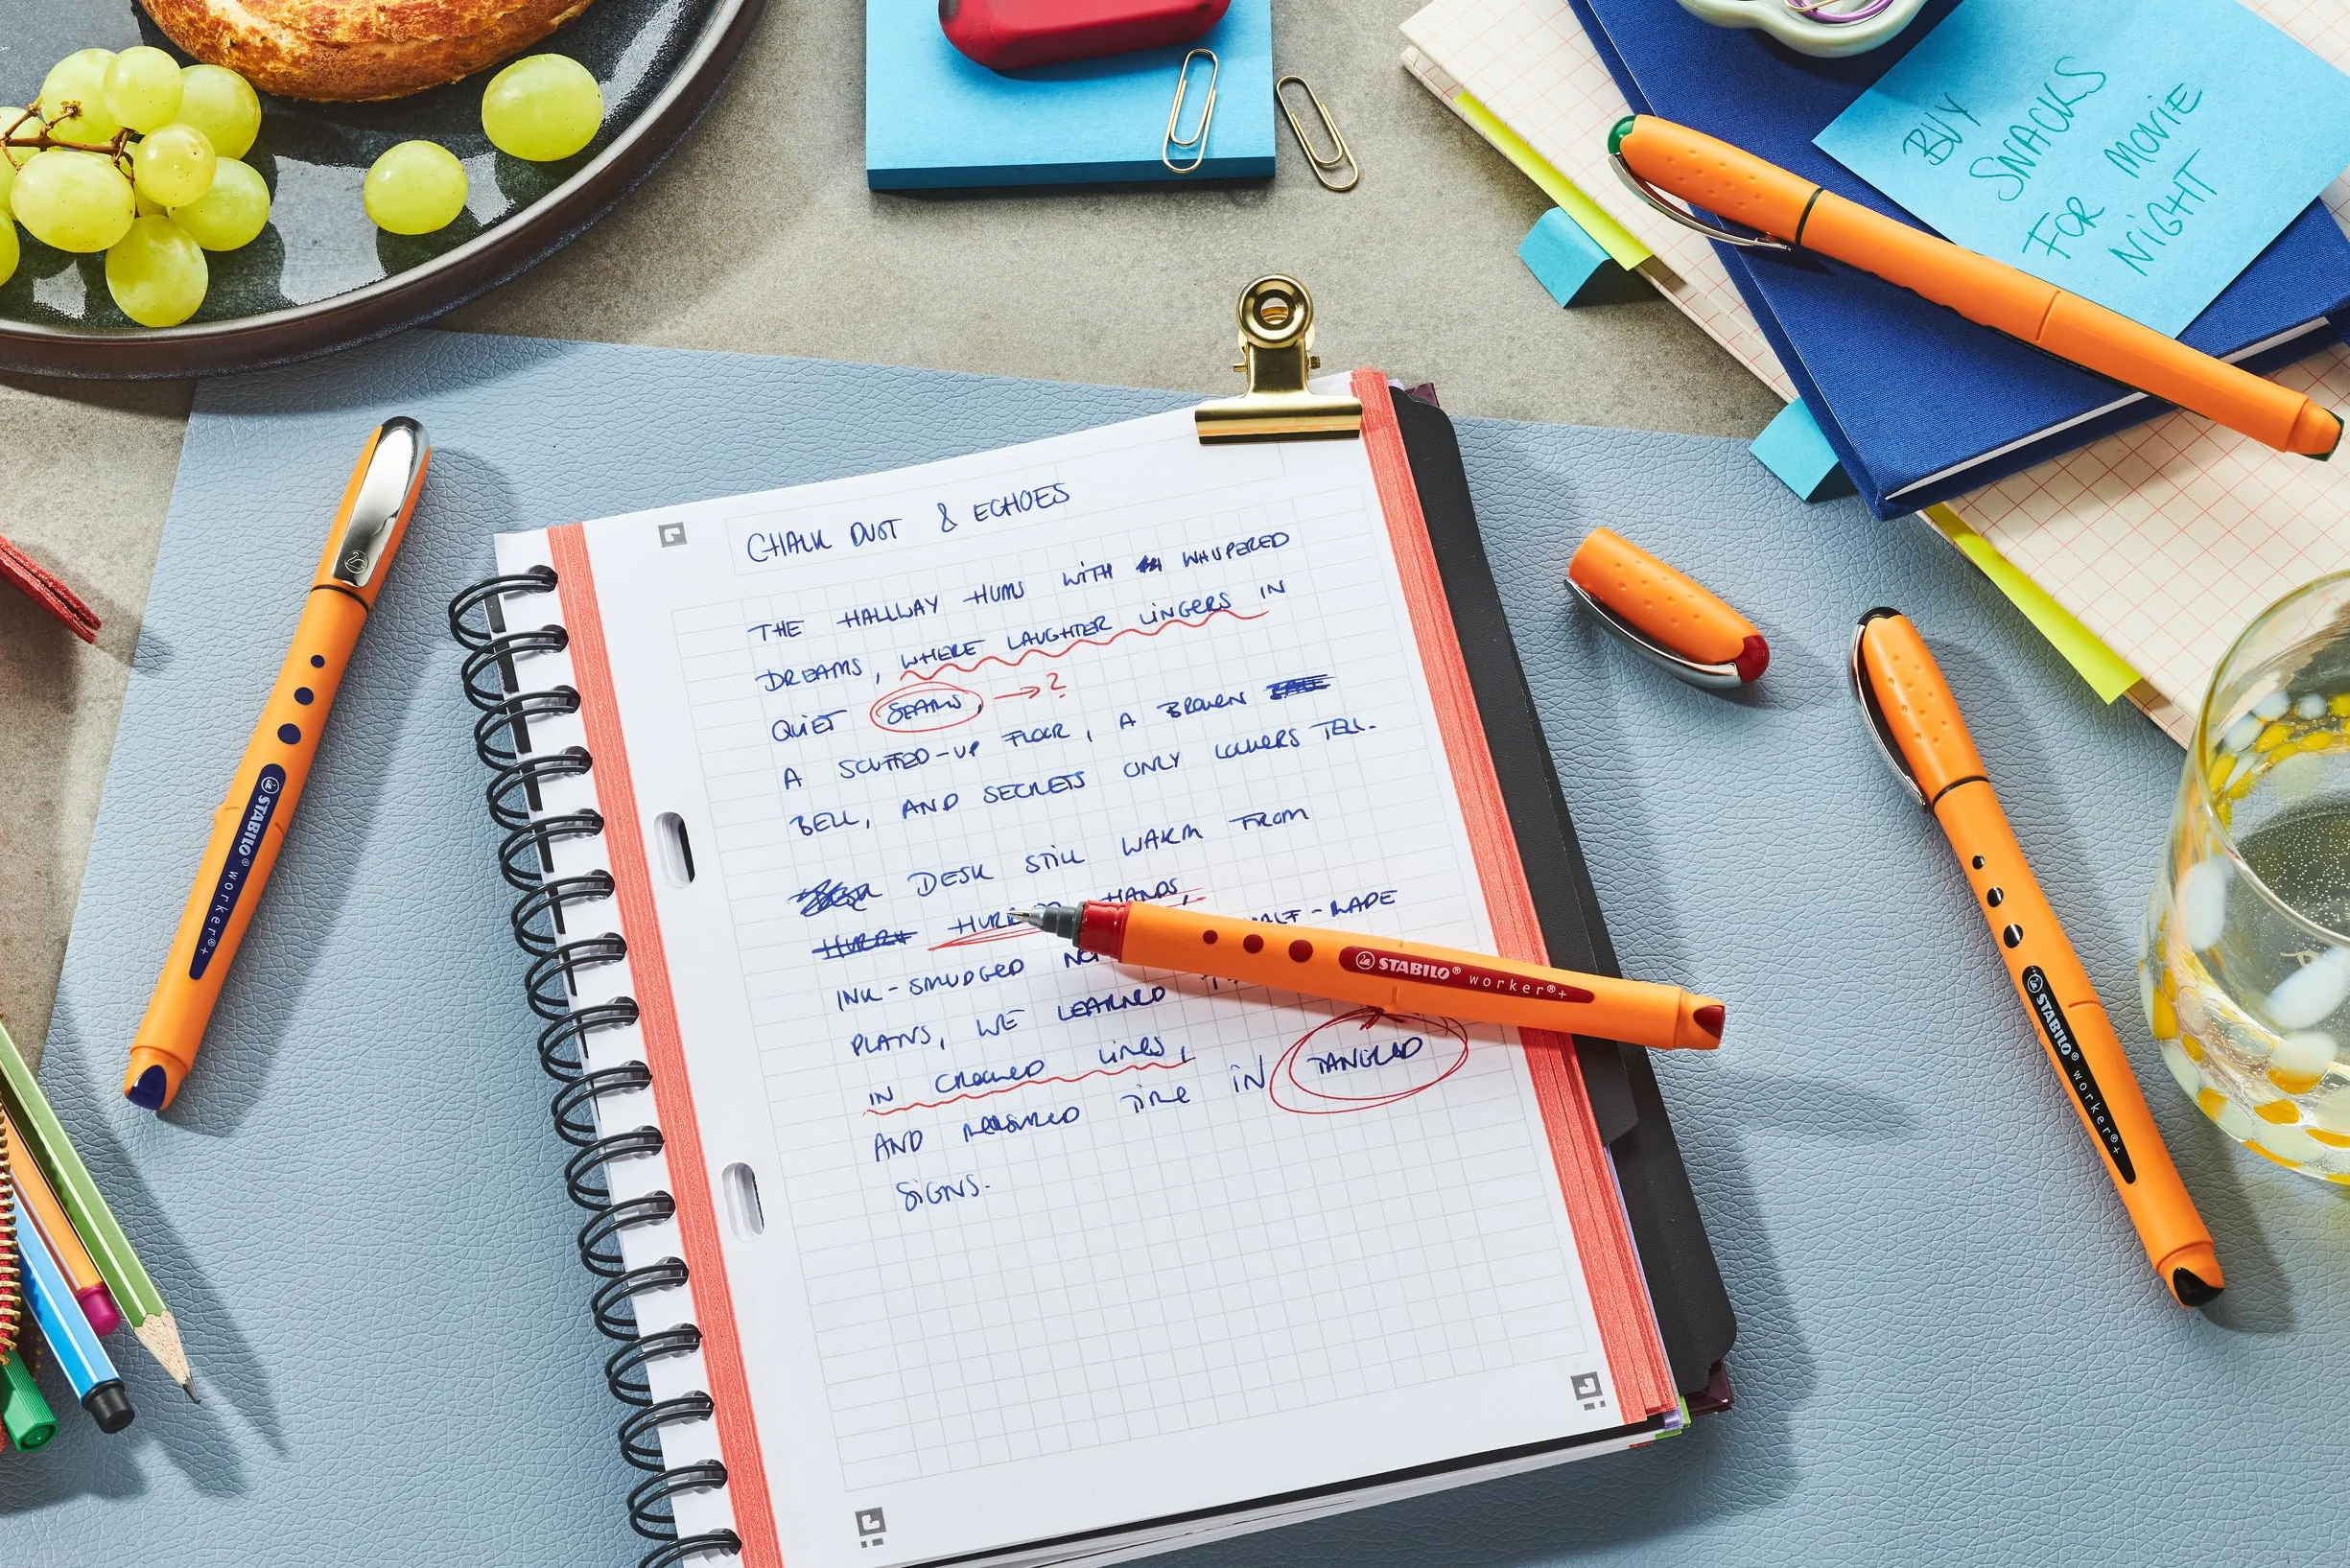 CHALK DUST & ECHOES
THE HALLWAY HUMS WITH WHISPERED
DREAMS, WHERE LAUGHTER LINGERS IN
QUIET SEAMS, → ?
A SCUFFED-UP FLOOR, A BROKEN
BELL, AND SECRETS ONLY LOCKERS TELL.
DESK STILL WARM FROM
HANDS,
INK-SMUDGED HALF-MADE
PLANS, WE LEARNED
IN CROOKED LINES,
AND MEASURED TIME IN TANGLED
SIGNS.
BUY
SNACKS
FOR MOVIE
NIGHT
STABILO® worker®+
STABILO® worker®+
STABILO® worker®+